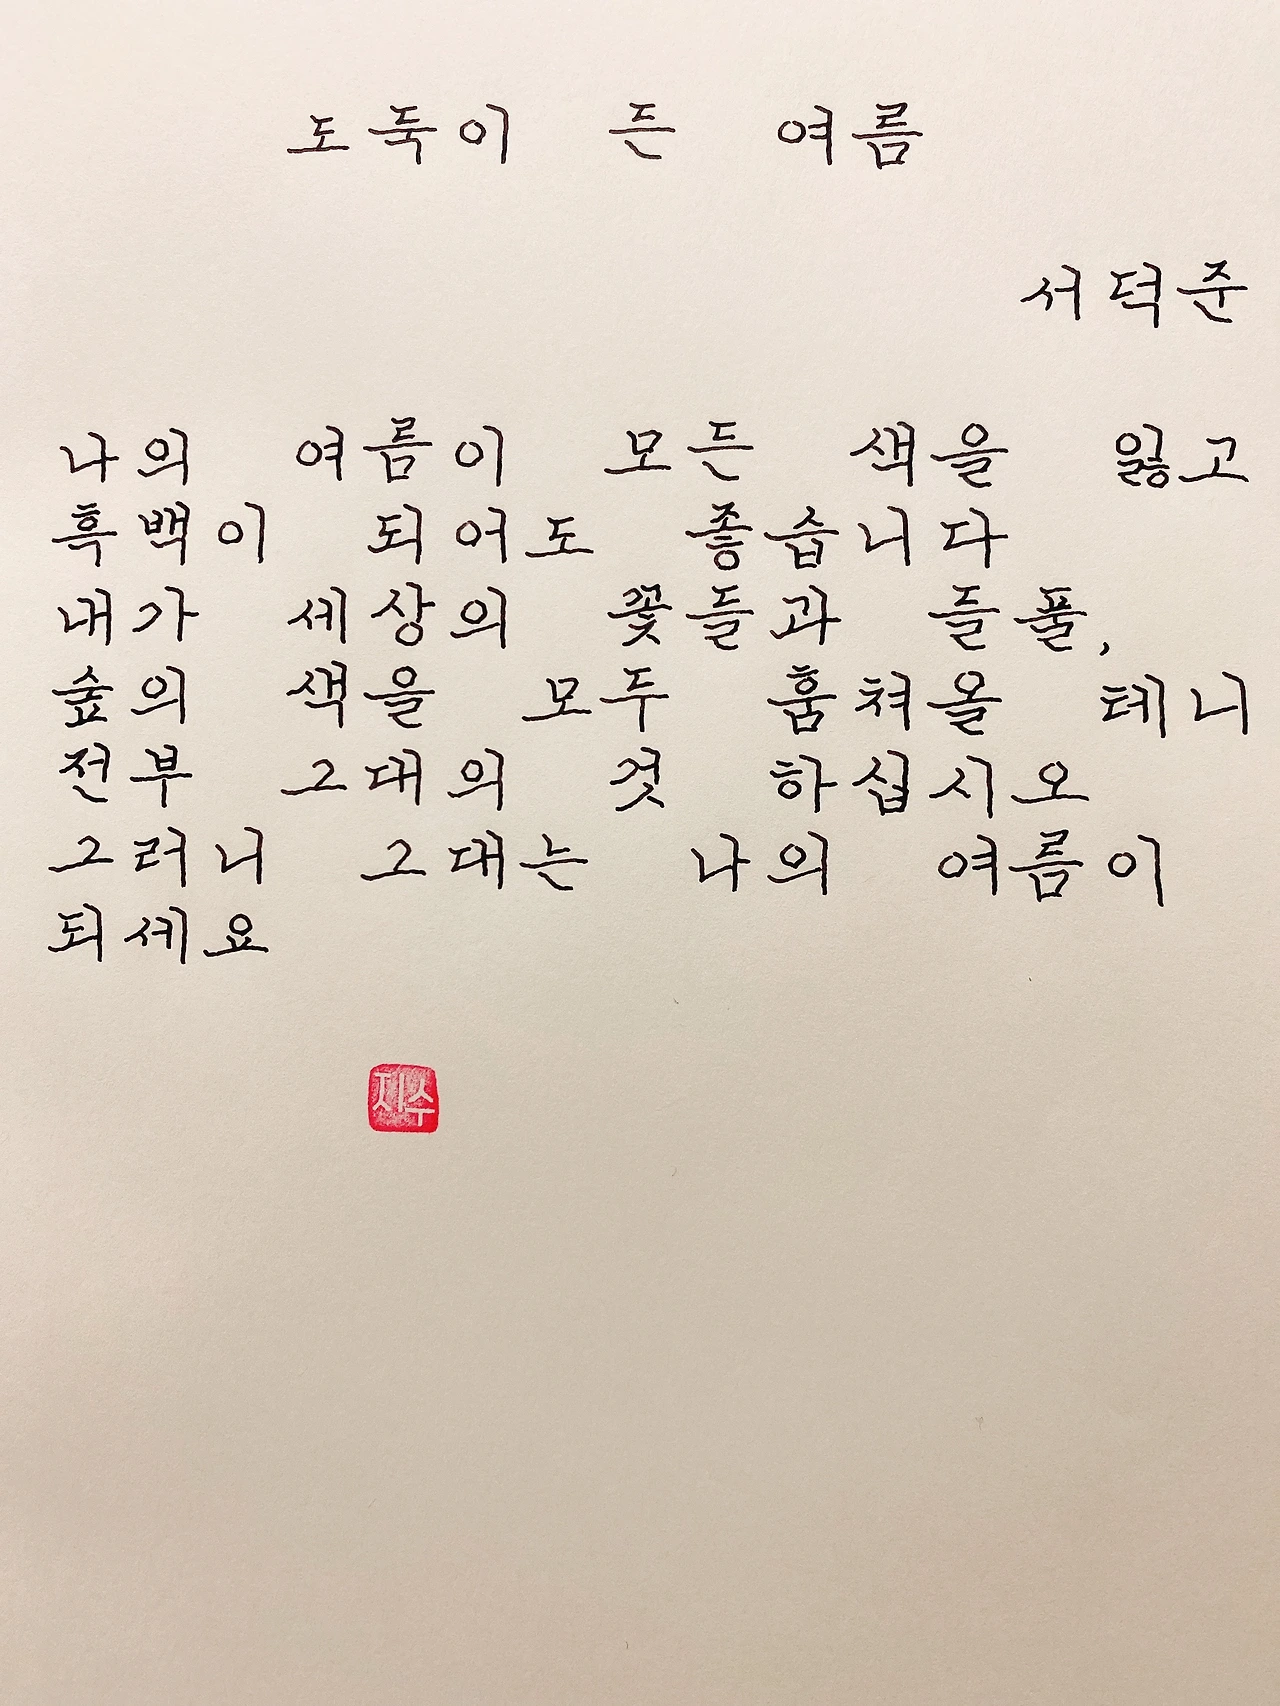 도둑이 든 여름
서덕준
나의 여름이 모든 색을 잃고
흑백이 되어도 좋습니다
내가 세상의 꽃들과 들풀,
숲의 색을 모두 훔쳐올 테니
전부 그대의 것 하십시오
그러니 그대는 나의 여름이
되세요
지수